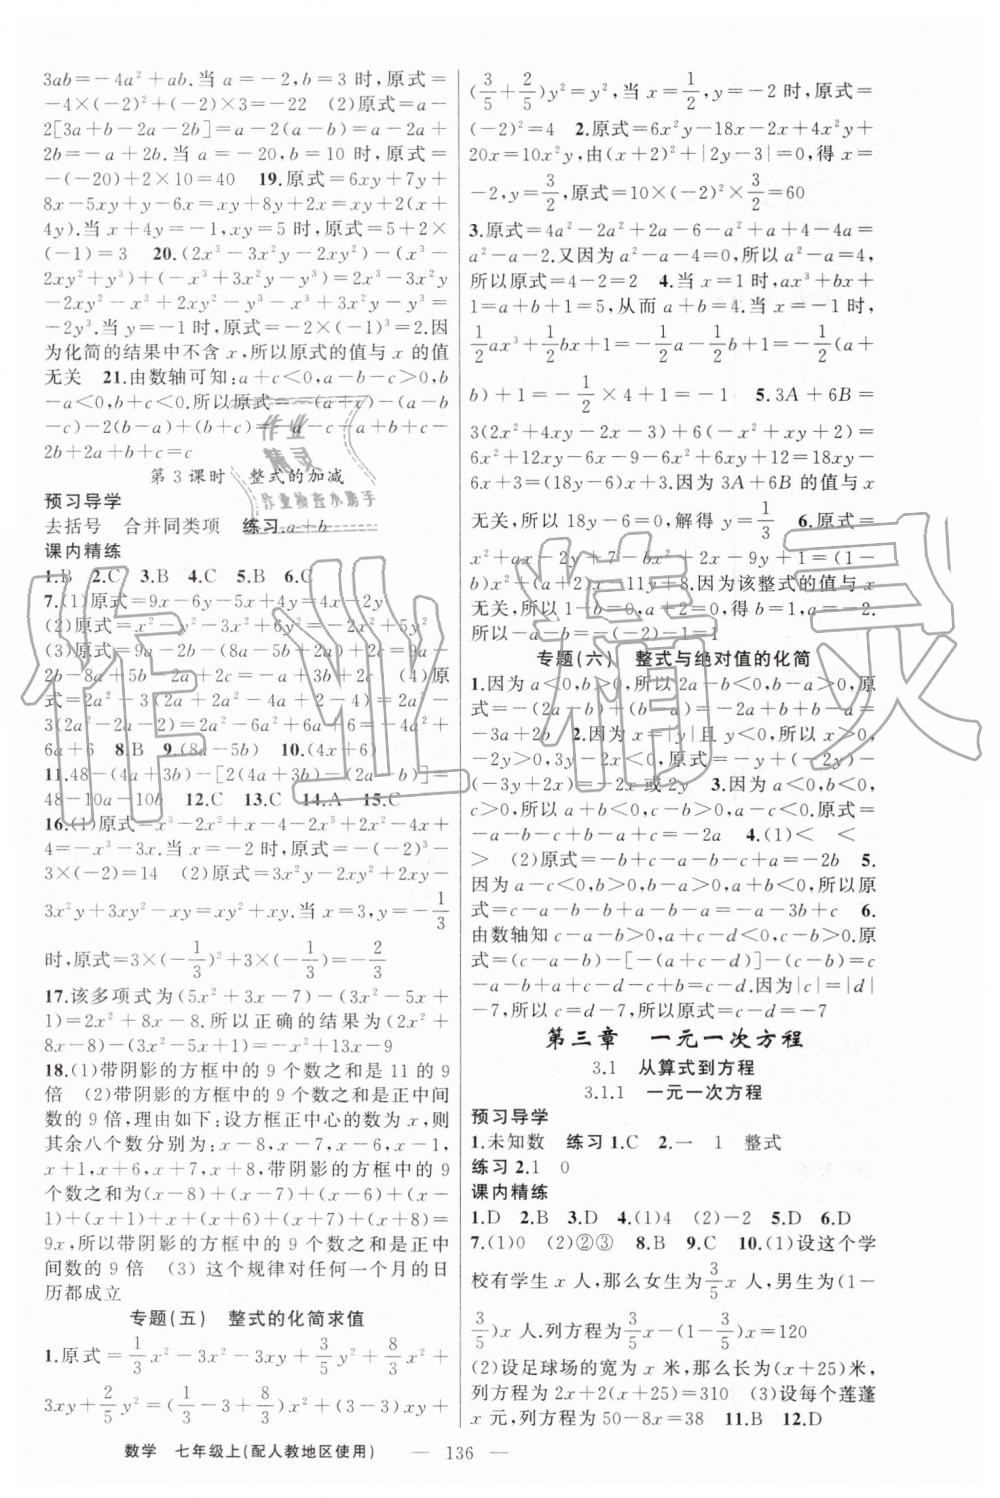 3ab=－4a²＋ab.当 a=－2,b=3 时,原式=
－4×(－2)²＋(－2)×3=－22　(2)原式=a－
2[3a＋b－2a－2b]=a－2(a－b)=a－2a＋
2b=－a＋2b.当 a=－20,b=10 时,原式=
－(－20)＋2×10=40　19.原式=6xy＋7y＋
8x－5xy＋y－6x=xy＋8y＋2x=xy＋2(x＋
4y).当 x＋4y=－1,xy=5 时,原式=5＋2×
(－1)=3　20.(2x³－3x²y－2xy²)－(x³－
2xy²＋y³)＋(－x³＋3x²y－y³)=2x³－3x²y
－2xy²－x³＋2xy²－y³－x³＋3x²y－y³=
－2y³.当 y=－1 时,原式=－2×(－1)³=2.因
为化简的结果中不含 x,所以原式的值与 x 的值
无关　21.由数轴可知:a＋c<0,a－b－c>0,b
－a<0,b＋c<0.所以原式=－(a＋c)－(a－b
－c)－2(b－a)＋(b＋c)=－a－c－a＋b＋c－
2b＋2a＋b＋c=c
第 3 课时　整式的加减
预习导学
去括号　合并同类项　练习.a＋b
课内精练
1.B　2.C　3.B　4.C　5.B　6.C
7.(1)原式=9x－6y－5x＋4y=4x－2y
(2)原式=x²－y²－3x²＋6y²=－2x²＋5y²
(3)原式=9a－2b－(8a－5b－2c)＋2c=9a－
2b－8a＋5b＋2c＋2c=－a＋3b＋4c　(4)原
式=2a²－3(2a²－4a－2a＋2a－4)=2a²－
3(2a²－2a－2)=2a²－6a²＋6a＋6=－4a²＋
6a＋6　8.B　9.(8a－5b)　10.(4x＋6)
11.48－(4a＋3b)－[2(4a＋3b)－(2a－b)]=
48－10a－10b　12.C　13.C　14.A　15.C
16.(1)原式=x³－2x²＋x－4－2x³＋2x²－4x＋
4=－x³－3x.当 x=－2 时,原式=－(－2)³－
3×(－2)=14　(2)原式=3x²y－2xy²＋2xy－
3x²y＋3xy²－xy=xy²＋xy.当 x=3,y=－1/3
时,原式=3×(－1/3)²＋3×(－1/3)=－2/3
17.该多项式为(5x²＋3x－7)－(3x²－5x＋
1)=2x²＋8x－8.所以正确的结果为(2x²＋
8x－8)－(3x²－5x＋1)=－x²＋13x－9
18.(1)带阴影的方框中的 9 个数之和是 11 的 9
倍　(2)带阴影的方框中的 9 个数之和是正中间
数的 9 倍,理由如下:设方框正中心的数为 x,则
其余八个数分别为:x－8,x－7,x－6,x－1,
x＋1,x＋6,x＋7,x＋8,带阴影的方框中的 9
个数之和为(x－8)＋(x－7)＋(x－6)＋(x－
1)＋(x＋1)＋(x＋6)＋(x＋7)＋(x＋8)＋x=
9x,所以带阴影的方框中的 9 个数之和是正中
间数的 9 倍　(3) 这个规律对任何一个月的日
历都成立
专题(五)　整式的化简求值
1.原式=1/3x²－3x²－3xy＋3/5y²＋8/3x²＋
3xy＋2/5y²=(1/3－3＋8/3)x²＋(3－3)xy＋
数学　七年级上(配人教地区使用)　— 136 —
(3/5＋2/5)y²=y²,当 x=1/2,y=－2 时,原式=
(－2)²=4　2.原式=6x²y－18x－2x＋4x²y＋
20x=10x²y,由(x＋2)²＋|2y－3|=0,得 x=
－2,y=3/2,原式=10×(－2)²×3/2=60
3.原式=4a²－2a²＋2a－6－a²＋a＋4－4a=
a²－a－2.又因为 a²－a－4=0,所以 a²－a=4,
所以原式=4－2=2　4.当 x=1 时,ax³＋bx＋
1=a＋b＋1=5,从而 a＋b=4.当 x=－1 时,
1/2ax³＋1/2bx＋1=－1/2a－1/2b＋1=－1/2(a＋
b)＋1=－1/2×4＋1=－1　5.3A＋6B=
3(2x²＋6xy－2x－3)＋6(－x²＋xy－1)=
6x²＋18xy－6x－9－6x²＋6xy－6=18xy－
6x－15=(18y－6)x－15,因为 3A＋6B 的值与 x
无关,所以 18y－6=0,解得 y=1/3　6.原式=
x²＋ax－2y＋7－bx²＋2x－9y＋1=(1－
b)x²＋(a＋2)x－11y＋8.因为该整式的值与 x
无关,所以 1－b=0,a＋2=0,得 b=1,a=－2.
所以－a－b=－(－2)－1=1
专题(六)　整式与绝对值的化简
1.因为 a<0,b>0,所以 2a－b<0,b－a>0,原
式=－(2a－b)＋(b－a)=－2a＋b＋b－a=
－3a＋2b　2.因为 x=|y|且 y<0,所以 x>0,
－2y>0,3y－2x<0,所以原式=－y＋(－2y)
－(－3y＋2x)=－2x=－2x 或 2y　3.因为 a<0,b<0,
c>0,所以 a＋b<0,c－b>0,a－c<0.原式=
－a－b－c＋b－b－a＋c=－2a　4.(1)<　<
>　(2)原式=－b＋c－a－b－c＋a=－2b　5.
因为 a－c<0,b>0,b－a>0,b＋a<0,所以原
式=c－a－b－b＋a－b－a=－a－3b＋c　6.
由数轴知 c－a－b>0,a＋c－d<0,c－b>0.原
式=(c－a－b)－[－(a＋c－d)]－(c－b)=c
－a－b＋a＋c－d－c＋b=c－d.因为|c|=|d|
－7,所以 c=d－7,所以原式=c－d=－7
第三章　一元一次方程
3.1　从算式到方程
3.1.1　一元一次方程
预习导学
1.未知数　练习 1.C　2.一　1　整式
练习 2.1　0
课内精练
1.D　2.B　3.D　4.(1)4　(2)－2　5.D　6.D
7.(1)0　(2)②③　8.B　9.C　10.(1)设这个学
校有学生 x 人,那么女生为3/5x 人,男生为(1－
3/5)x 人.列方程为3/5x－(1－3/5)x=120
(2)设足球场的宽为 x 米,那么长为(x＋25)米,
列方程为 2x＋2(x＋25)=310　(3)设每个莲蓬
x 元.列方程为 50－8x=38　11.B　12.D
作业精灵
作业
精灵
作业检查小助手